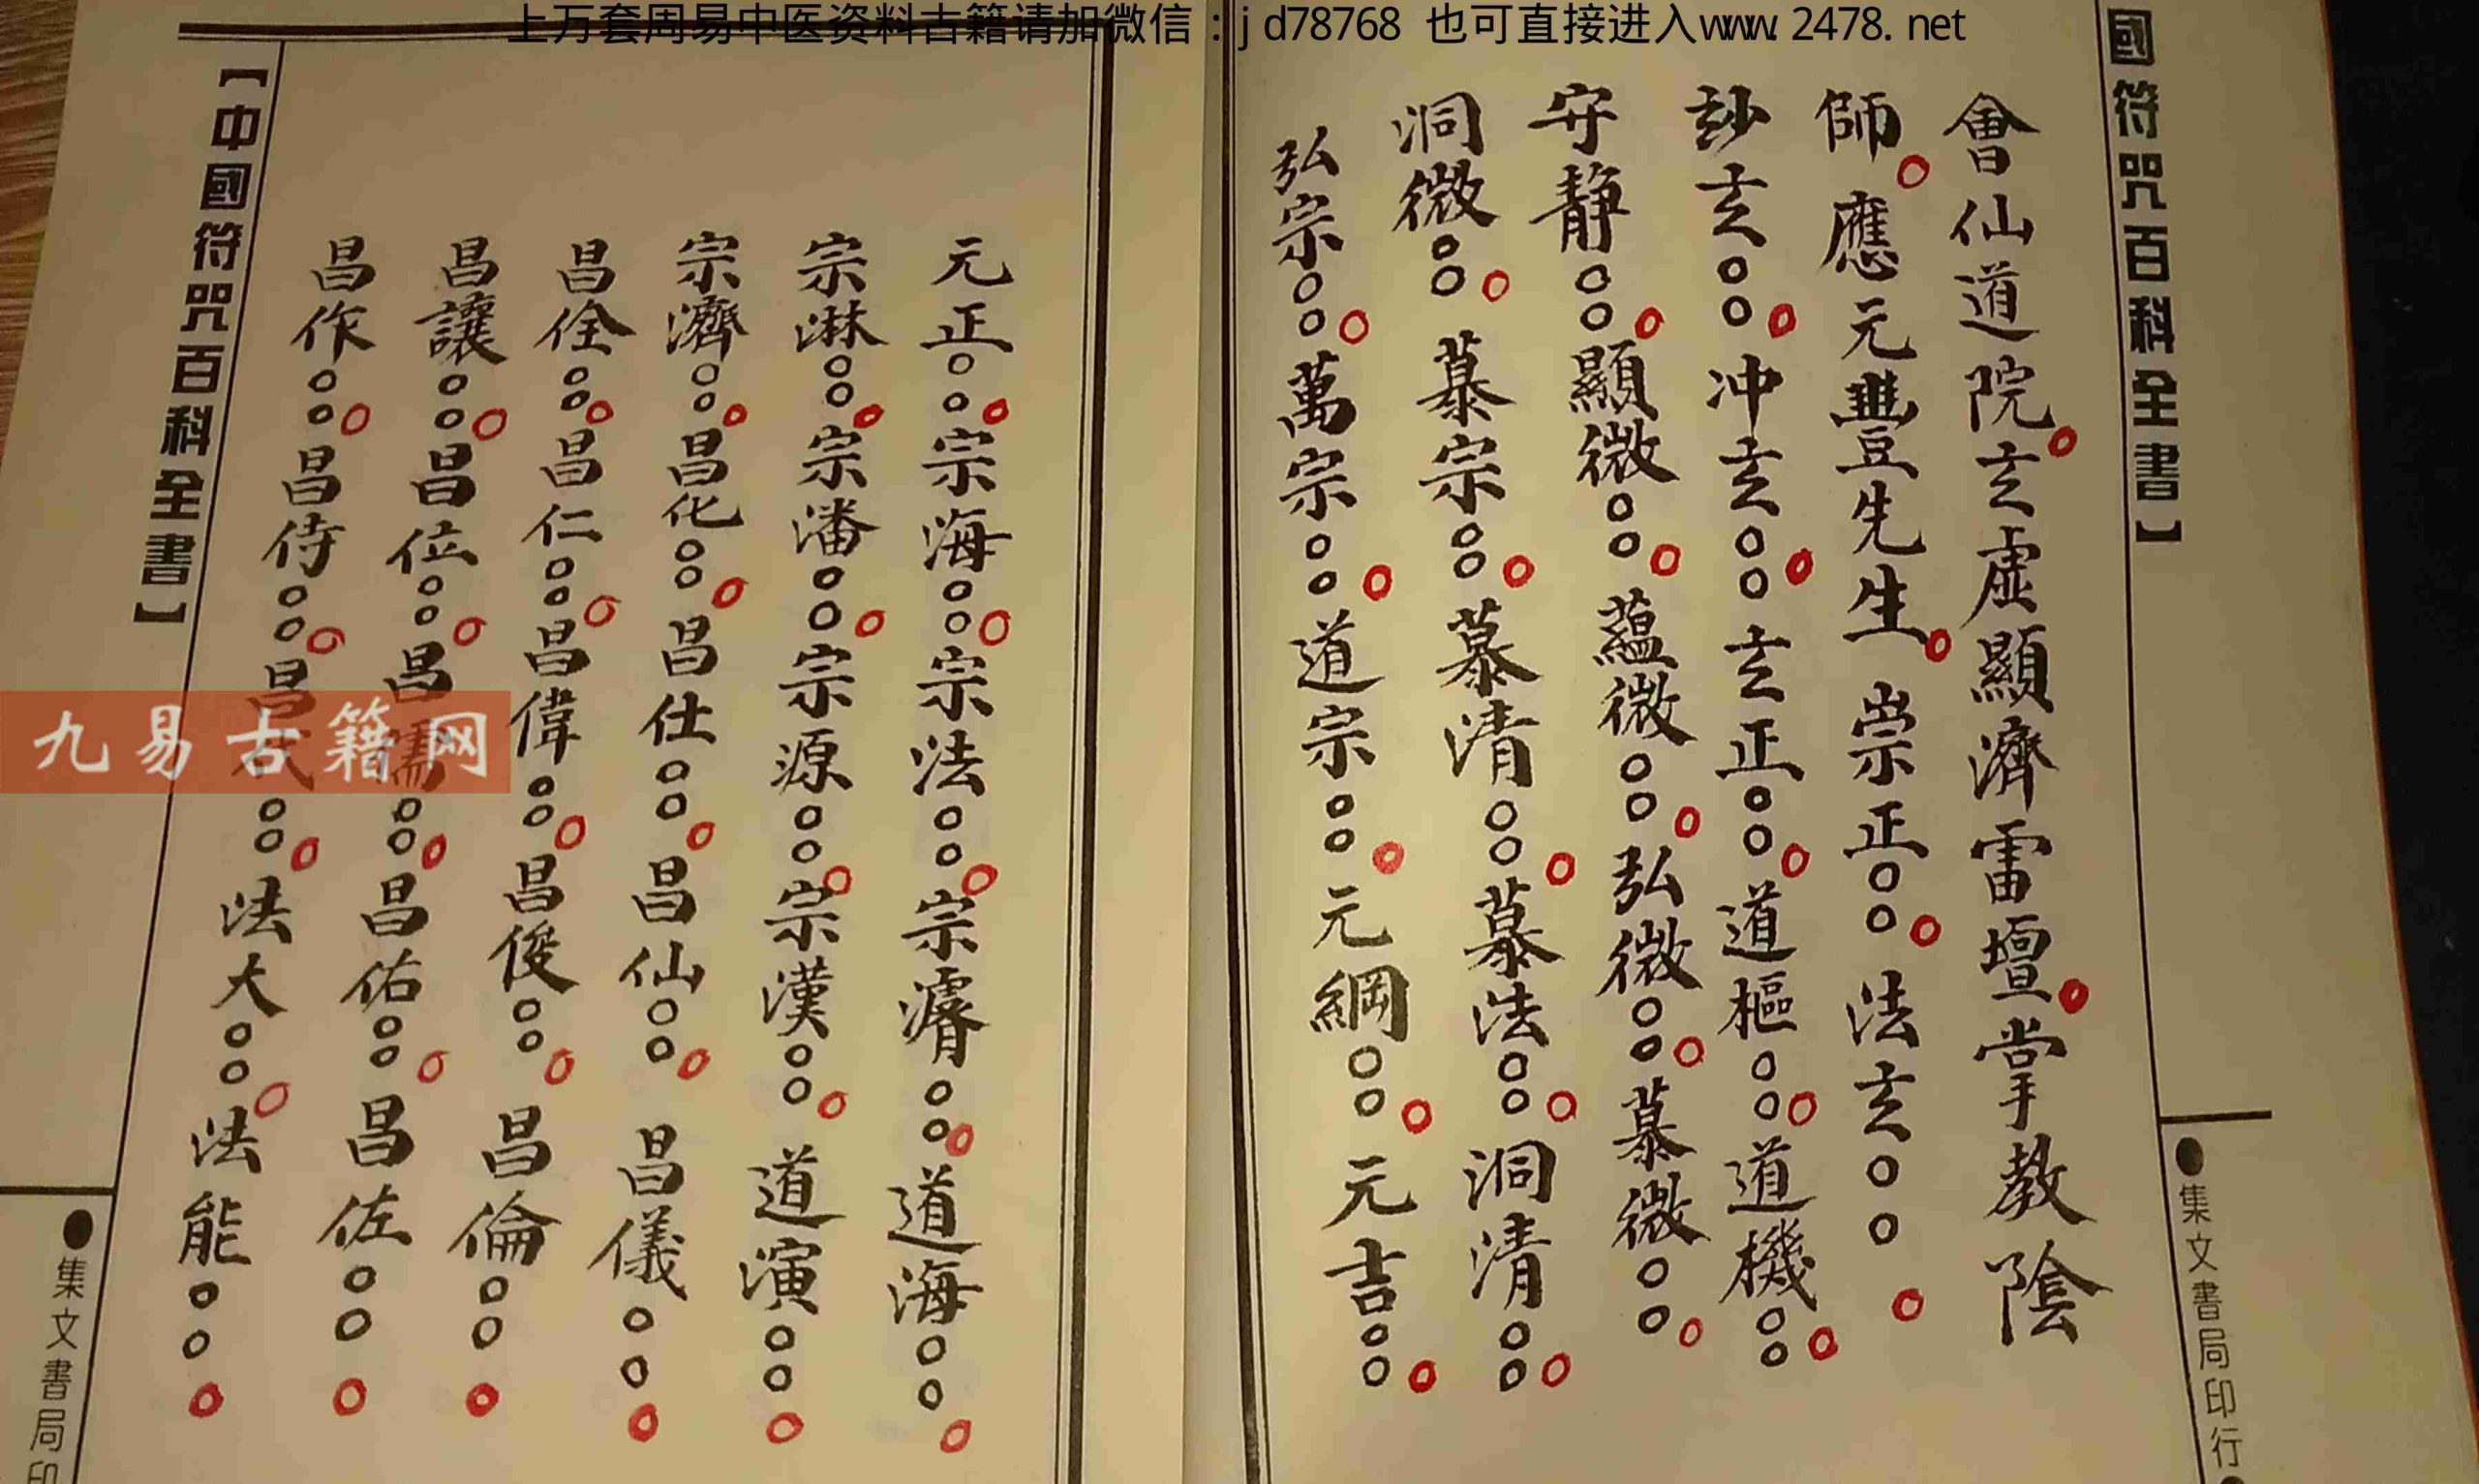 上万套周易中医资料古籍请加微信：jd78768 也可直接进入www.2478.net
國符咒百科全書】
會仙道院玄虛顯濟雷壇掌教陰
師應元豐先生崇正○○法玄○○
玅玄○○冲玄○○玄正○○道樞○○道機○○
守靜○○顯微○○蘊微○○弘微○○慕微○○
洞微○○慕宗○○慕清○○慕法○○洞清○○
弘宗○○萬宗○○道宗○○元綱○○元吉○○
●集文書局印行●
元正○○宗海○○宗法○○宗濬○○道海○○
宗淋○○宗潘○○宗源○○宗漢○○道演○○
宗濟○○昌化○○昌仕○○昌仙○○昌儀○○
昌佺○○昌仁○○昌偉○○昌俊○○昌倫○○
昌讓○○昌位○○昌儒○○昌佑○○昌佐○○
昌作○○昌侍○○昌○○法大○○法能○○
【中國符咒百科全書】
●集文書局印
九易古籍网